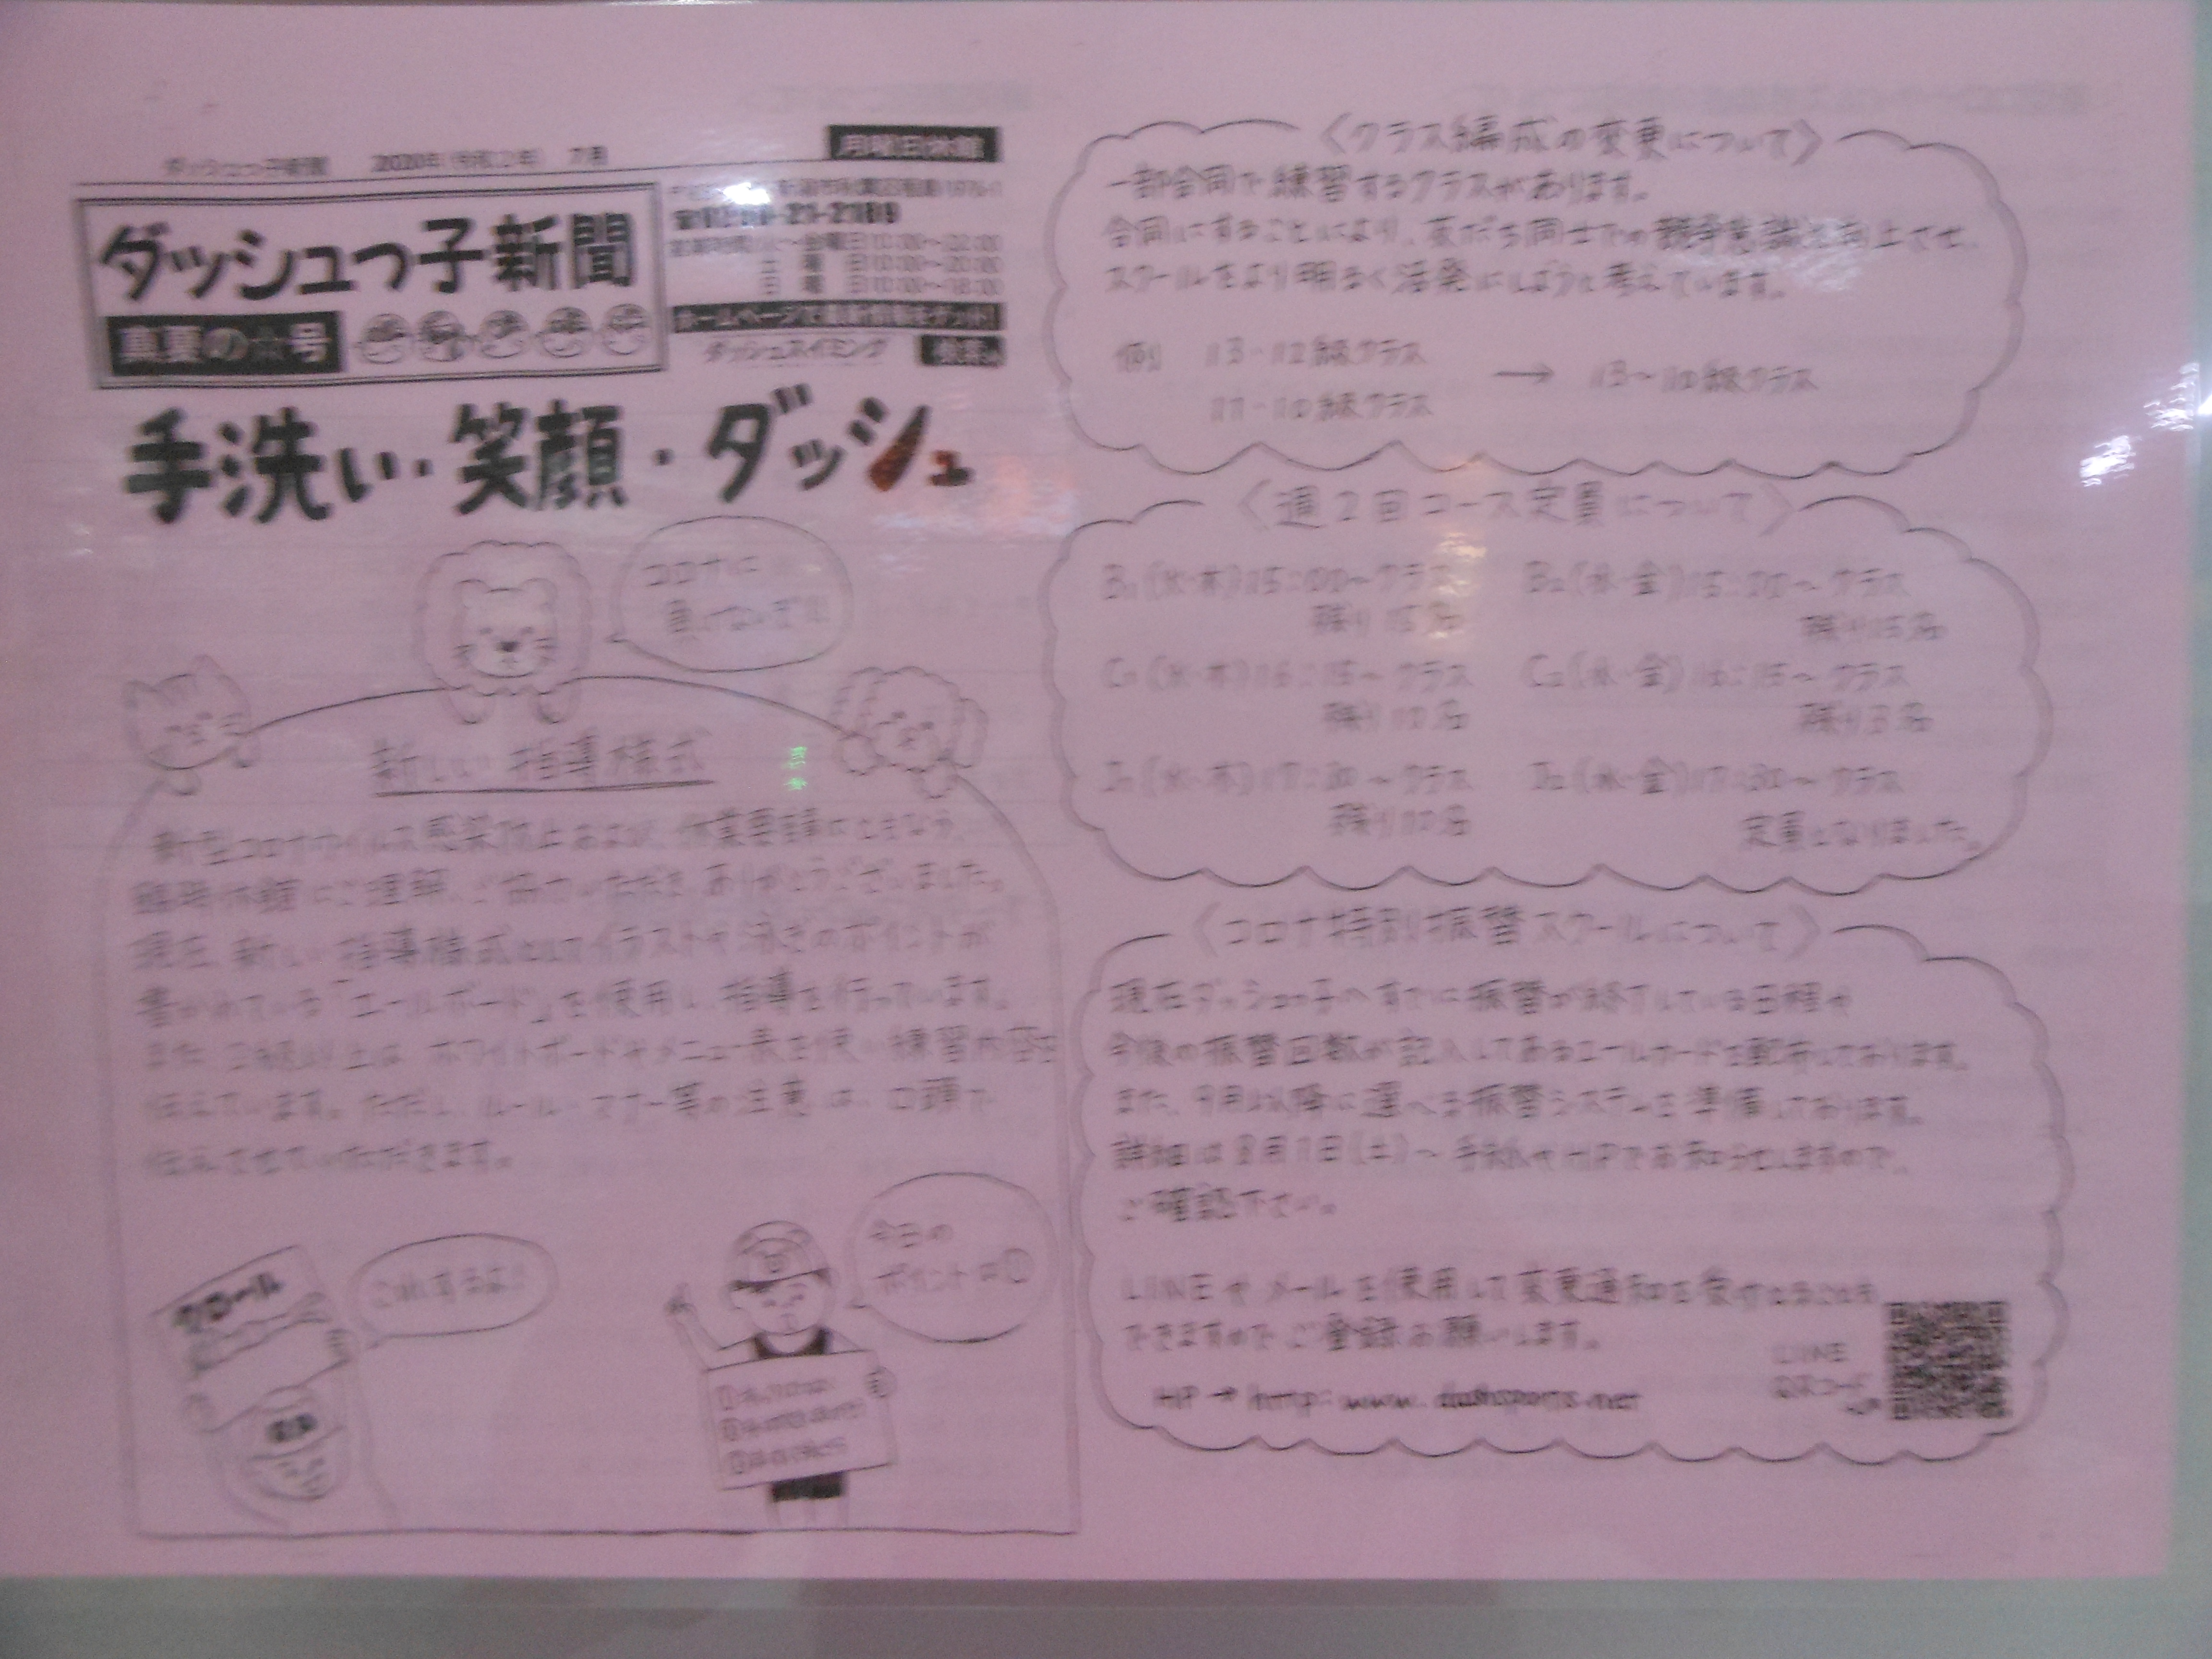 ダッシュっ子新聞 2020年(令和2年) 7月
月曜日休館
ダッシュっ子新聞
真夏の☆号
-21-2189
金曜日10:00～22:00
土曜日10:00～20:00
日曜日10:00～18:00
ホームページで最新情報をゲット!
ダッシュスイミング 検索
手洗い・笑顔・ダッシュ
コロナに
負けないぞ!!
新しい指導様式
新型コロナウイルス感染防止および、休業要請にともなう、
臨時休館にご理解、ご協力いただき、ありがとうございました。
現在、新しい指導様式としてイラストや泳ぎのポイントが
書かれている「エールボード」を使用し、指導を行っています。
また、3級以上は、ホワイトボードやメニュー表を使い練習内容を
伝えています。ただし、ルール・マナー等の注意は、口頭で
伝えさせていただきます。
クロール
これするよ!!
今日の
ポイントは①
〈クラス編成の変更について〉
一部合同で練習するクラスがあります。
合同にすることにより、友だち同士での競争意識を向上させ、
スクールをより明るく活発にしようと考えています。
例 13-12級クラス
11-10級クラス
→ 13～10級クラス
〈週2回コース定員について〉
B₁(水・木)15:00～クラス B₂(水・金)15:00～クラス
残り15名 残り15名
C₁(水・木)16:15～クラス C₂(水・金)16:15～クラス
残り10名 残り3名
(水・木)17:30～クラス (水・金)17:30～クラス
残り10名 定員となりました。
〈コロナ特別振替スクールについて〉
現在ダッシュっ子へすでに振替が終了している日程や
今後の振替回数が記入してあるエールカードを配布しております。
また、9月以降に選べる振替システムを準備しております。
詳細は8月1日(土)～手紙やHPでお知らせしますので、
ご確認下さい。
LINEやメールを使用して変更通知を受けとることも
できますのでご登録お願いします。
LINE
QRコード
HP→http:www.dashsports.net